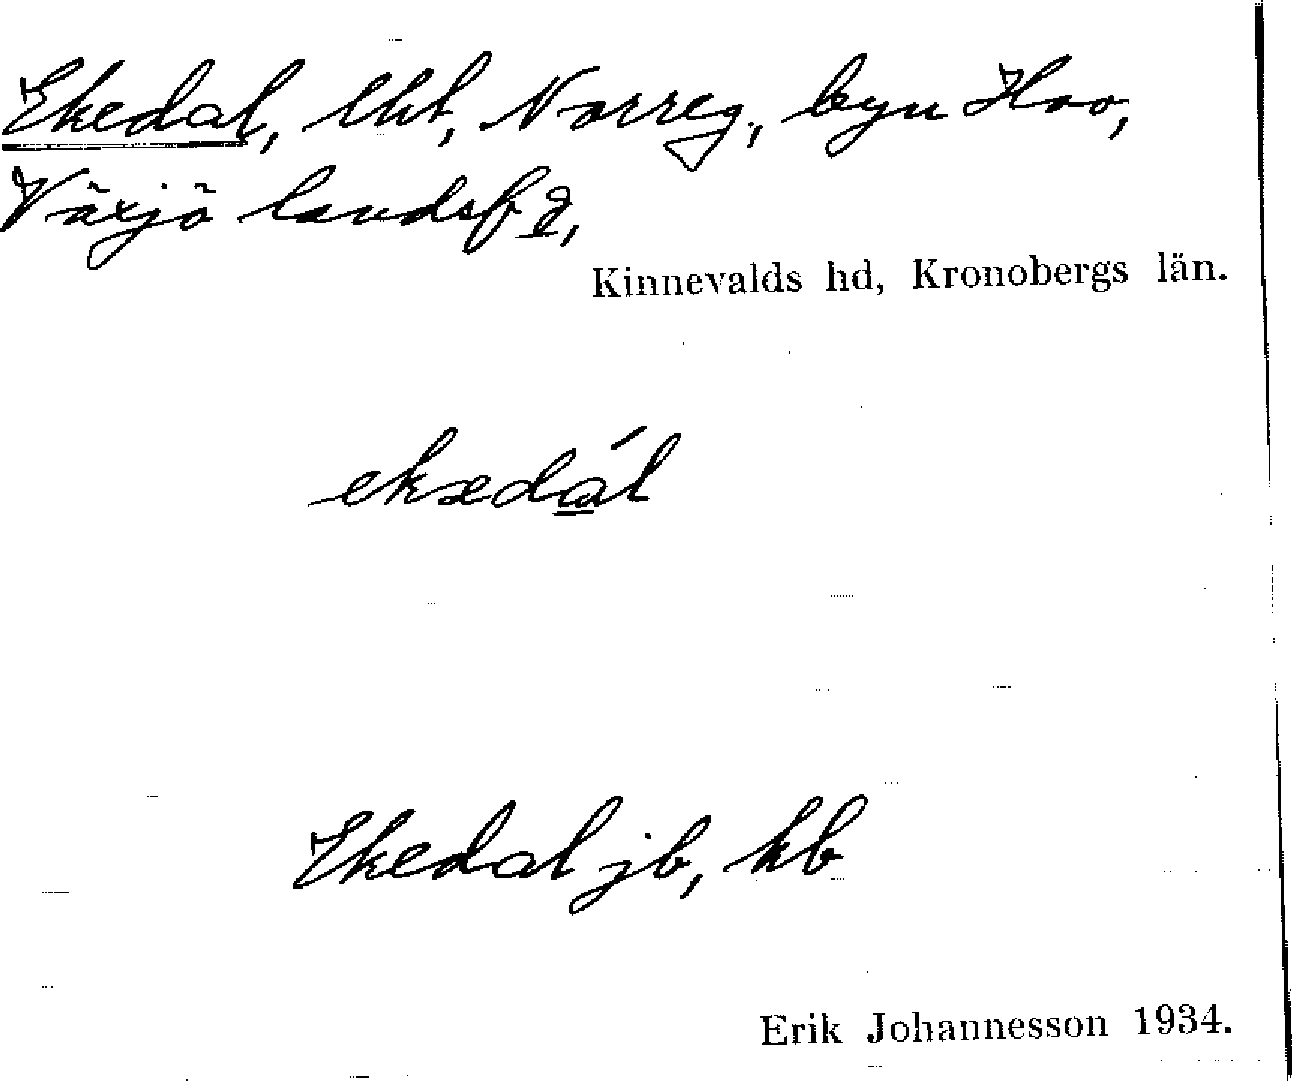 Ekedal, lht, Norreg, byn Hoo,
Växjö landsf d,
Kinnevalds hd, Kronobergs län.
ekædál
Ekedal jb, kb
Erik Johannesson 1934.